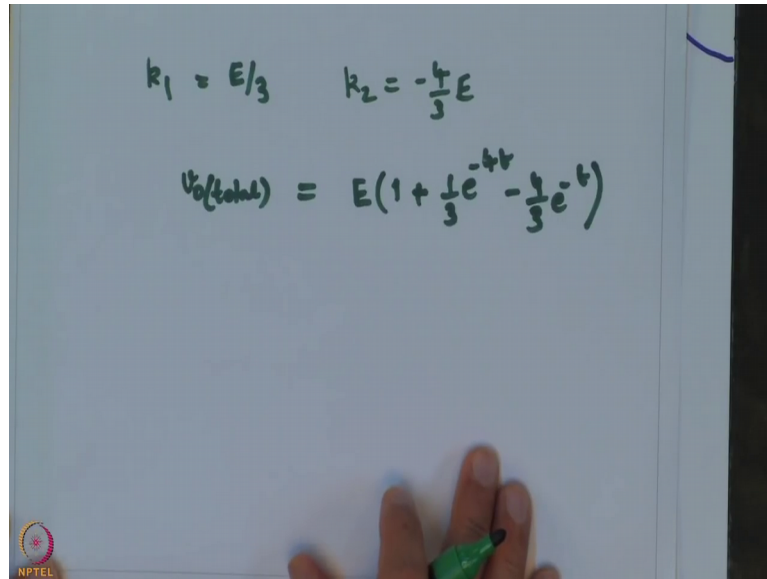 k₁ = E/3 k₂ = -4/3 E
v₀(total) = E(1 + 1/3 e^-4t - 4/3 e^-t)
NPTEL